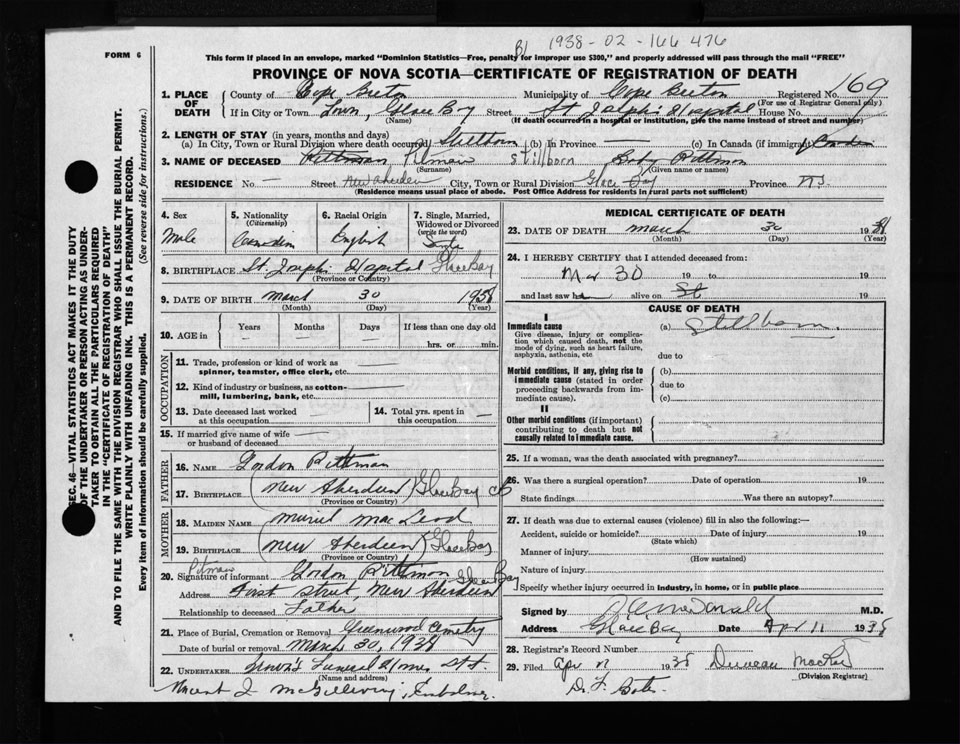 FORM 6
B/ 1938-02-166476
This form if placed in an envelope, marked "Dominion Statistics—Free, penalty for improper use $300," and properly addressed will pass through the mail "FREE"
PROVINCE OF NOVA SCOTIA—CERTIFICATE OF REGISTRATION OF DEATH
1. PLACE OF DEATH County of Cape Breton Municipality of Cape Breton Registered No. 169
(For use of Registrar General only)
If in City or Town Town, Glace Bay Street St Joseph's Hospital House No.
(Name) (If death occurred in a hospital or institution, give the name instead of street and number)
2. LENGTH OF STAY (in years, months and days)
(a) In City, Town or Rural Division where death occurred Stillborn (b) In Province — (c) In Canada (if immigrant)
3. NAME OF DECEASED Pittman Pitman stillborn Baby Pittman
(Surname) (Given name or names)
RESIDENCE No. — Street New Aberdeen City, Town or Rural Division Glace Bay Province N.S.
(Residence means usual place of abode. Post Office Address for residents in rural parts not sufficient)
4. Sex Male
5. Nationality (Citizenship) Canadian
6. Racial Origin English
7. Single, Married, Widowed or Divorced (write the word) Single
8. BIRTHPLACE St. Joseph's Hospital Glace Bay
(Province or Country)
9. DATE OF BIRTH March 30 1938
(Month) (Day) (Year)
10. AGE in Years Months Days If less than one day
hrs. or min.
OCCUPATION
11. Trade, profession or kind of work as spinner, teamster, office clerk, etc.
12. Kind of industry or business, as cotton-mill, lumbering, bank, etc.
13. Date deceased last worked at this occupation
14. Total yrs. spent in this occupation —
15. If married give name of wife or husband of deceased —
FATHER
16. NAME Gordon Pittman
17. BIRTHPLACE (New Aberdeen) Glace Bay CB
(Province or Country)
MOTHER
18. MAIDEN NAME Muriel MacLeod
19. BIRTHPLACE (New Aberdeen) Glace Bay
(Province or Country)
Pitman
20. Signature of informant Gordon Pittman
Address First Street, New Aberdeen Glace Bay
Relationship to deceased Father
21. Place of Burial, Cremation or Removal Greenwood Cemetry
Date of burial or removal March 30, 1938
22. UNDERTAKER Funeral Home
(Name and address)
Vincent J. McGillivray, Embalmer.
MEDICAL CERTIFICATE OF DEATH
23. DATE OF DEATH March 30 1938
(Month) (Day) (Year)
24. I HEREBY CERTIFY that I attended deceased from:
Mar 30 19 to 19
and last saw h alive on 19
CAUSE OF DEATH
I
Immediate cause (a) Stillborn
Give disease, injury or complication which caused death, not the mode of dying, such as heart failure, asphyxia, asthenia, etc
due to
Morbid conditions, if any, giving rise to immediate cause (stated in order proceeding backwards from immediate cause).
(b)
due to
(c)
II
Other morbid conditions (if important) contributing to death but not causally related to immediate cause.
25. If a woman, was the death associated with pregnancy?
26. Was there a surgical operation? Date of operation 19
State findings Was there an autopsy?
27. If death was due to external causes (violence) fill in also the following:—
Accident, suicide or homicide? Date of injury 19
(State which)
Manner of injury
(How sustained)
Nature of injury
Specify whether injury occurred in industry, in home, or in public place
Signed by McDonald M.D.
Address Glace Bay Date Apr 11 1938
28. Registrar's Record Number
29. Filed Apr 11 1938 Duncan
(Division Registrar)
SEC. 46—VITAL STATISTICS ACT MAKES IT THE DUTY OF THE UNDERTAKER OR PERSON ACTING AS UNDERTAKER TO OBTAIN ALL THE PARTICULARS REQUIRED IN THE "CERTIFICATE OF REGISTRATION OF DEATH"
AND TO FILE THE SAME WITH THE DIVISION REGISTRAR WHO SHALL ISSUE THE BURIAL PERMIT.
WRITE PLAINLY WITH UNFADING INK. THIS IS A PERMANENT RECORD.
Every item of information should be carefully supplied. (See reverse side for instructions.)